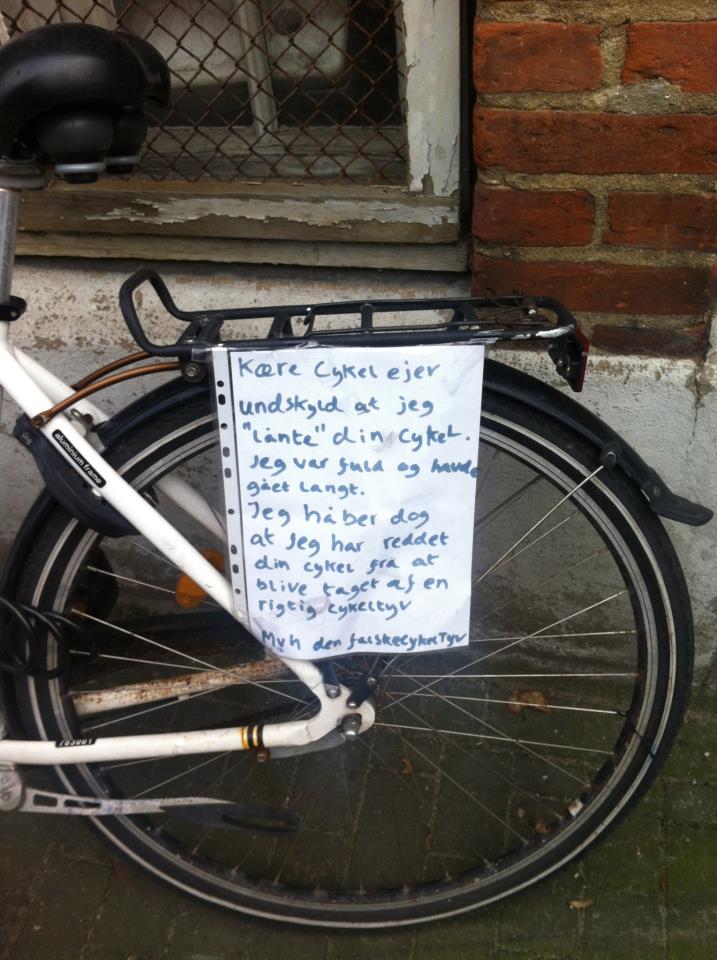 Kære Cykel ejer
undskyld at jeg
"lånte" din cykel.
Jeg var fuld og havde
gået langt.
Jeg håber dog
at Jeg har reddet
din cykel fra at
blive taget af en
rigtig cykeltyv
Mvh den falskecykelTyv
aluminium frame